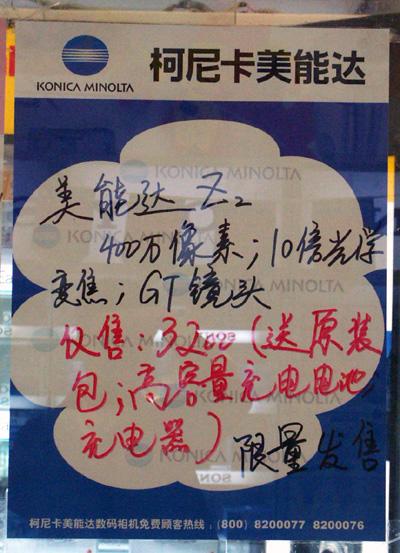 KONICA MINOLTA
柯尼卡美能达
美能达 Z2
400万像素;10倍光学
变焦;GT镜头
仅售:3200(送原装
包;高容量充电电池
充电器)
限量发售
KONICA MINOLTA
KONICA MINOLTA
柯尼卡美能达数码相机免费顾客热线:(800) 8200077 8200076